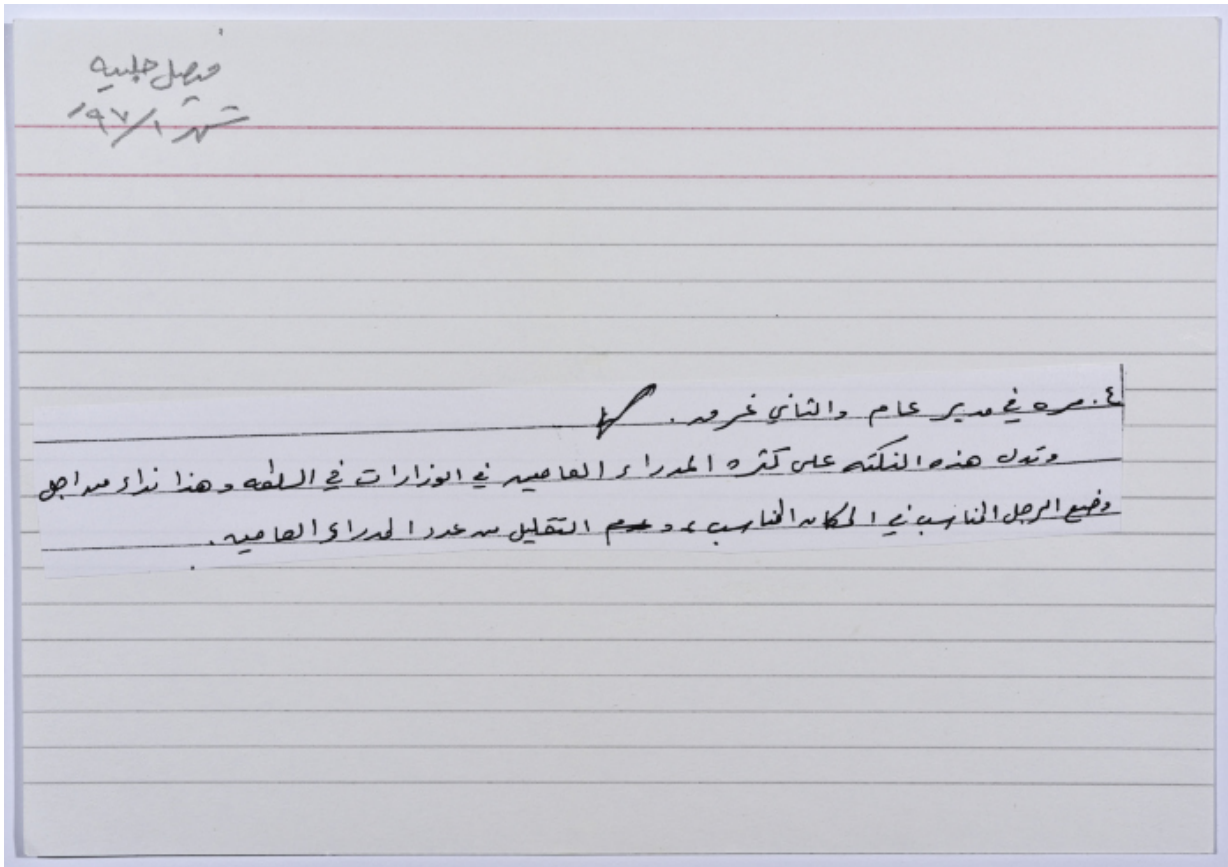 فيصل حلبيه
شهر ١/٩٧
٤. مره في مدير عام والثاني غرمه.
وتدل هذه النكته على كثره المدراء العامين في الوزارات في السلطه وهذا نداء من اجل
وضع الرجل المناسب في المكان المناسب، و التقليل من عدد المدراء العامين.